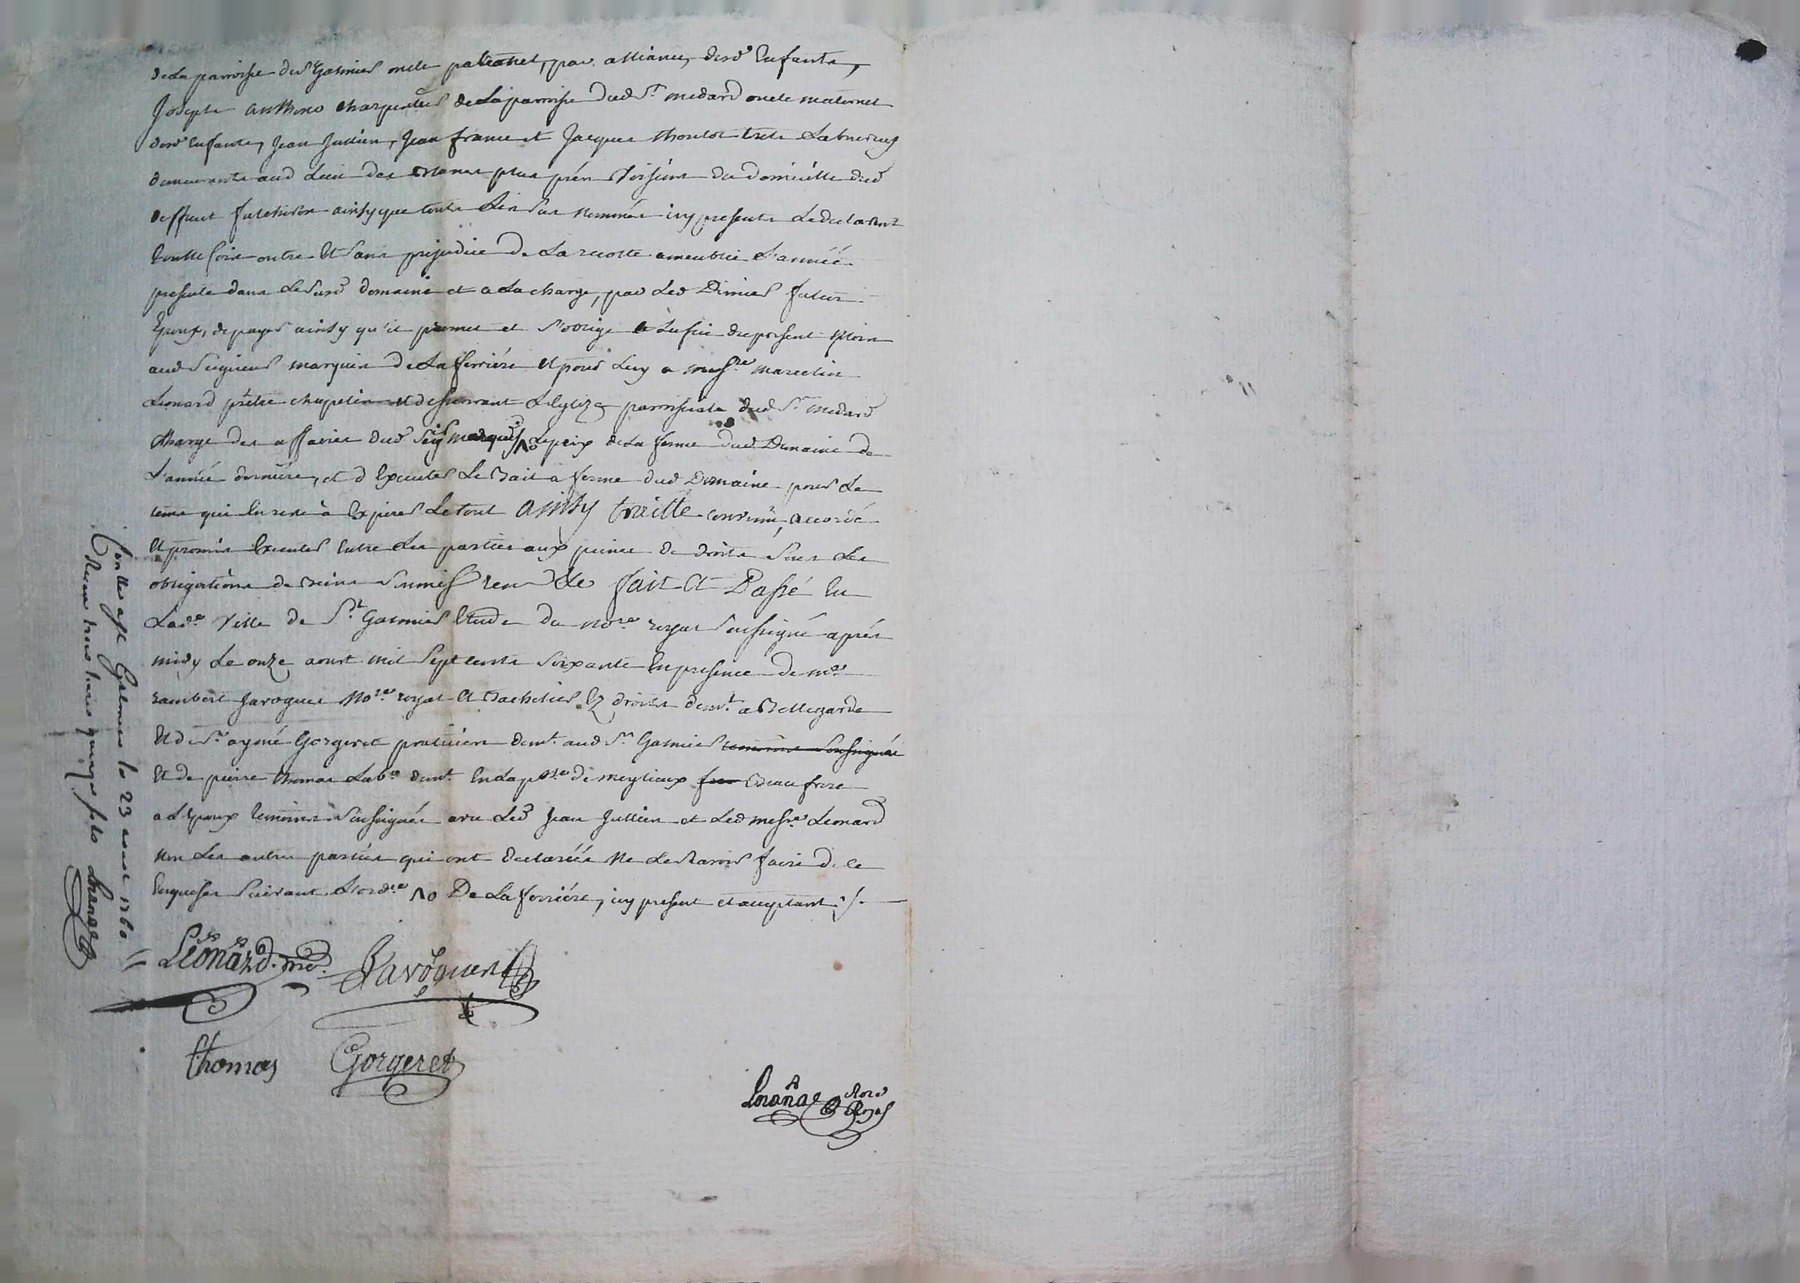 de la parroisse de St Galmier oncle paternel, par alliance, desd. Enfants,
Joseph anthino charpentier de la parroisse dud St medard oncle maternel
desd Enfants, Jean Jullien, Jean france et Jacques thoulot tous Laboureurs
demeurants aud Lieu des plus près Voisins du domicille dud
deffunt ainsy que touts Les sus nommés icy presents Le declarent
outre Et sans prejudice de La recolte ameublie L'année
presente dans Le susd domaine et a La charge, par Led futur
Epoux, de payer ainsy qu'il promet et s'oblige a La fin du present mois
aud Seigneur marquis de La ferriére Et pour Luy a messre marcelin
Leonard prêtre chapelin et desservant L'Eglize parroissiale dud St medard
chargé des affaires dud Seigr marquis /\o Le prix de La ferme dud Domaine de
L'année derniére, et d'Executer Le Bail a ferme dud Domaine pour Le
tems qui En reste à Expirer Le tout ainsy traitté convenu, accordé
Et promis Executer Entre Les parties aux peines de droits sous Les
obligations de biens soumissions &e fait et Passé En
Lade Ville de St Galmier Etude du nore royal soussigné après
midy Le onze aoust mil sept cents soixante En presence de me
rambert Javogues nore royal Et Bachelier Ez droits demt a Bellegarde
Et de Sr aymé Gorgeret praticien demt aud St Galmier temoins soussignés
Et de pierre thomas Labr demt En La psse de meylieux Beau frere
a L'Epoux temoins soussignés avec Led Jean Jullien et Led messre Leonard
non Les autres parties qui ont declarées ne Le sçavoir faire de ce
Enquises suivant L'ordce /\o De La ferriére, icy present et acceptant ./.
Leonard. ptre. Javogues
thomas Gorgeret
Lorange Nore Royal
Conllé a St Galmier le 23 aoust 1760
Reçu trois livres quinze sols Lorange